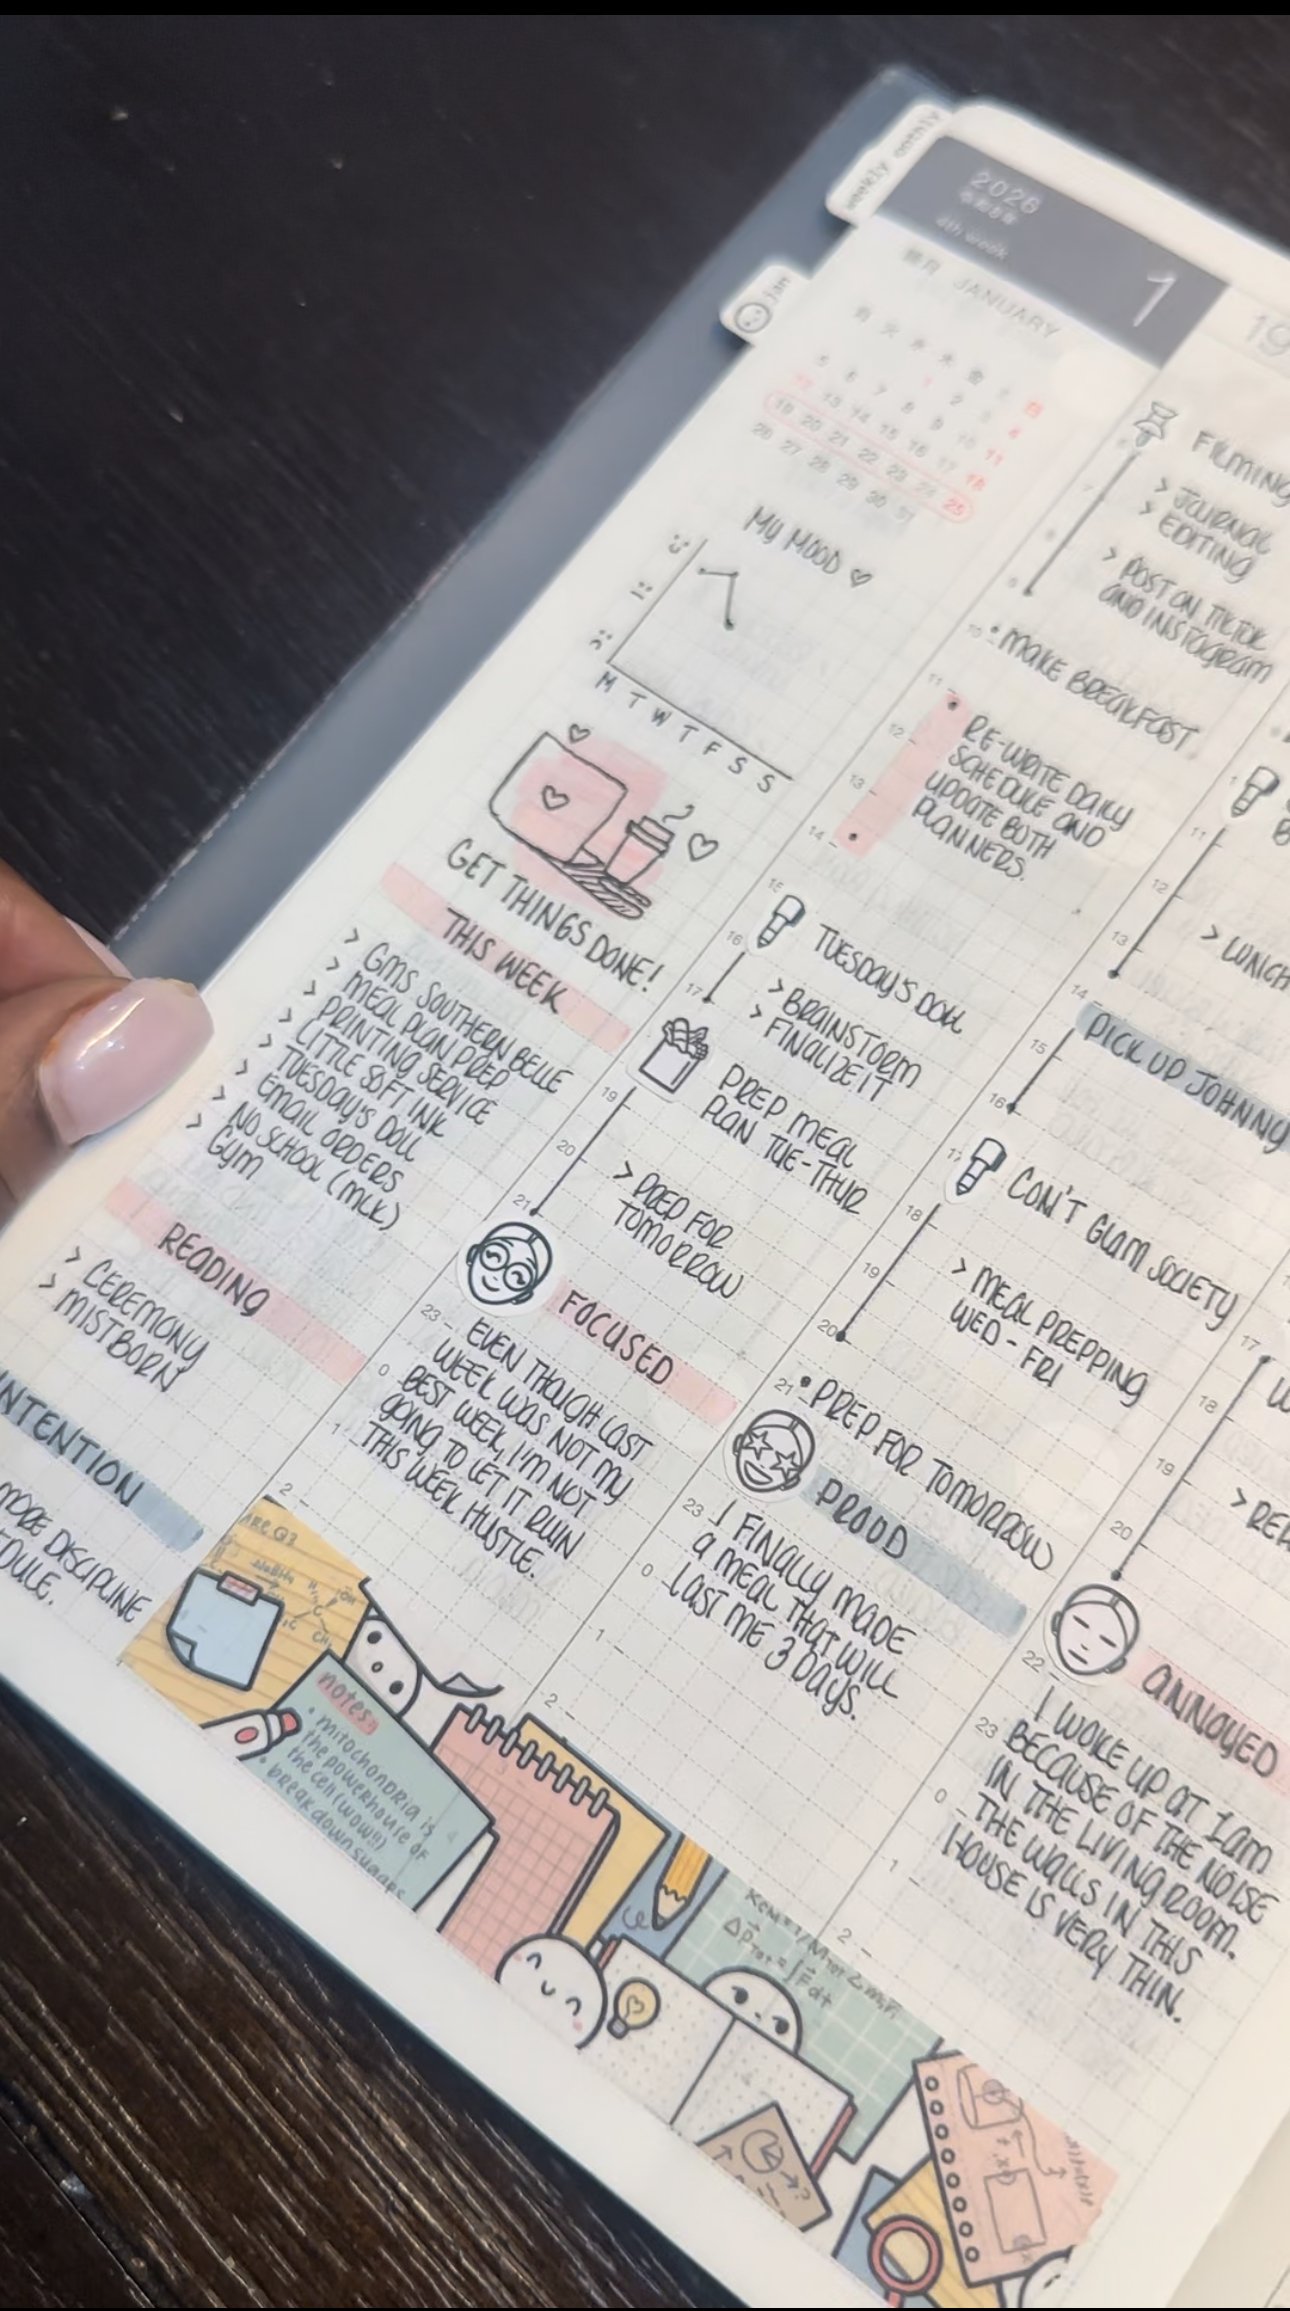 weekly
monthly
2026
令和8年
4th week
1
睦月 JANUARY
月 火 水 木 金 土 日
1 2 3 4
5 6 7 8 9 10 11
12 13 14 15 16 17 18
19 20 21 22 23 24 25
26 27 28 29 30 31
Jan
MY MOOD
M T W T F S S
GET THINGS DONE!
THIS WEEK
> GMS SOUTHERN BELLE
> MEAL PLAN PREP
> PRINTING SERVICE
> LITTLE SOFT INK
> TUESDAY'S DOLL
> EMAIL ORDERS
> NO SCHOOL (MLK)
> GYM
READING
> CEREMONY
> MISTBORN
INTENTION
MORE DISCIPLINE
19
FILMING
> JOURNAL
> EDITING
> POST ON TIKTOK
AND INSTAGRAM
10
• MAKE BREAKFAST
11
12
13
14
RE-WRITE DAILY
SCHEDULE AND
UPDATE BOTH
PLANNERS.
15
16
17
TUESDAY'S DOLL
> BRAINSTORM
> FINALIZE IT
PREP MEAL
PLAN TUE-THUR
19
20
21
> PREP FOR
TOMORROW
FOCUSED
23
0
1
2
EVEN THOUGH LAST
WEEK WAS NOT MY
BEST WEEK, I'M NOT
GOING TO LET IT RUIN
THIS WEEK HUSTLE.
11
12
13
> LUNCH
14
15
16
PICK UP JOHNNY
17
18
19
20
CON'T GLAM SOCIETY
> MEAL PREPPING
WED - FRI
21
• PREP FOR TOMORROW
PROUD
23
0
1
2
I FINALLY MADE
A MEAL THAT WILL
LAST ME 3 DAYS.
17
18
19
20
ANNOYED
22
23
0
1
2
I WOKE UP AT 1am
BECAUSE OF THE NOISE
IN THE LIVING ROOM.
THE WALLS IN THIS
HOUSE IS VERY THIN.
notes:
• mitochondria is
the powerhouse of
the cell (wow!!!)
• break down sugars